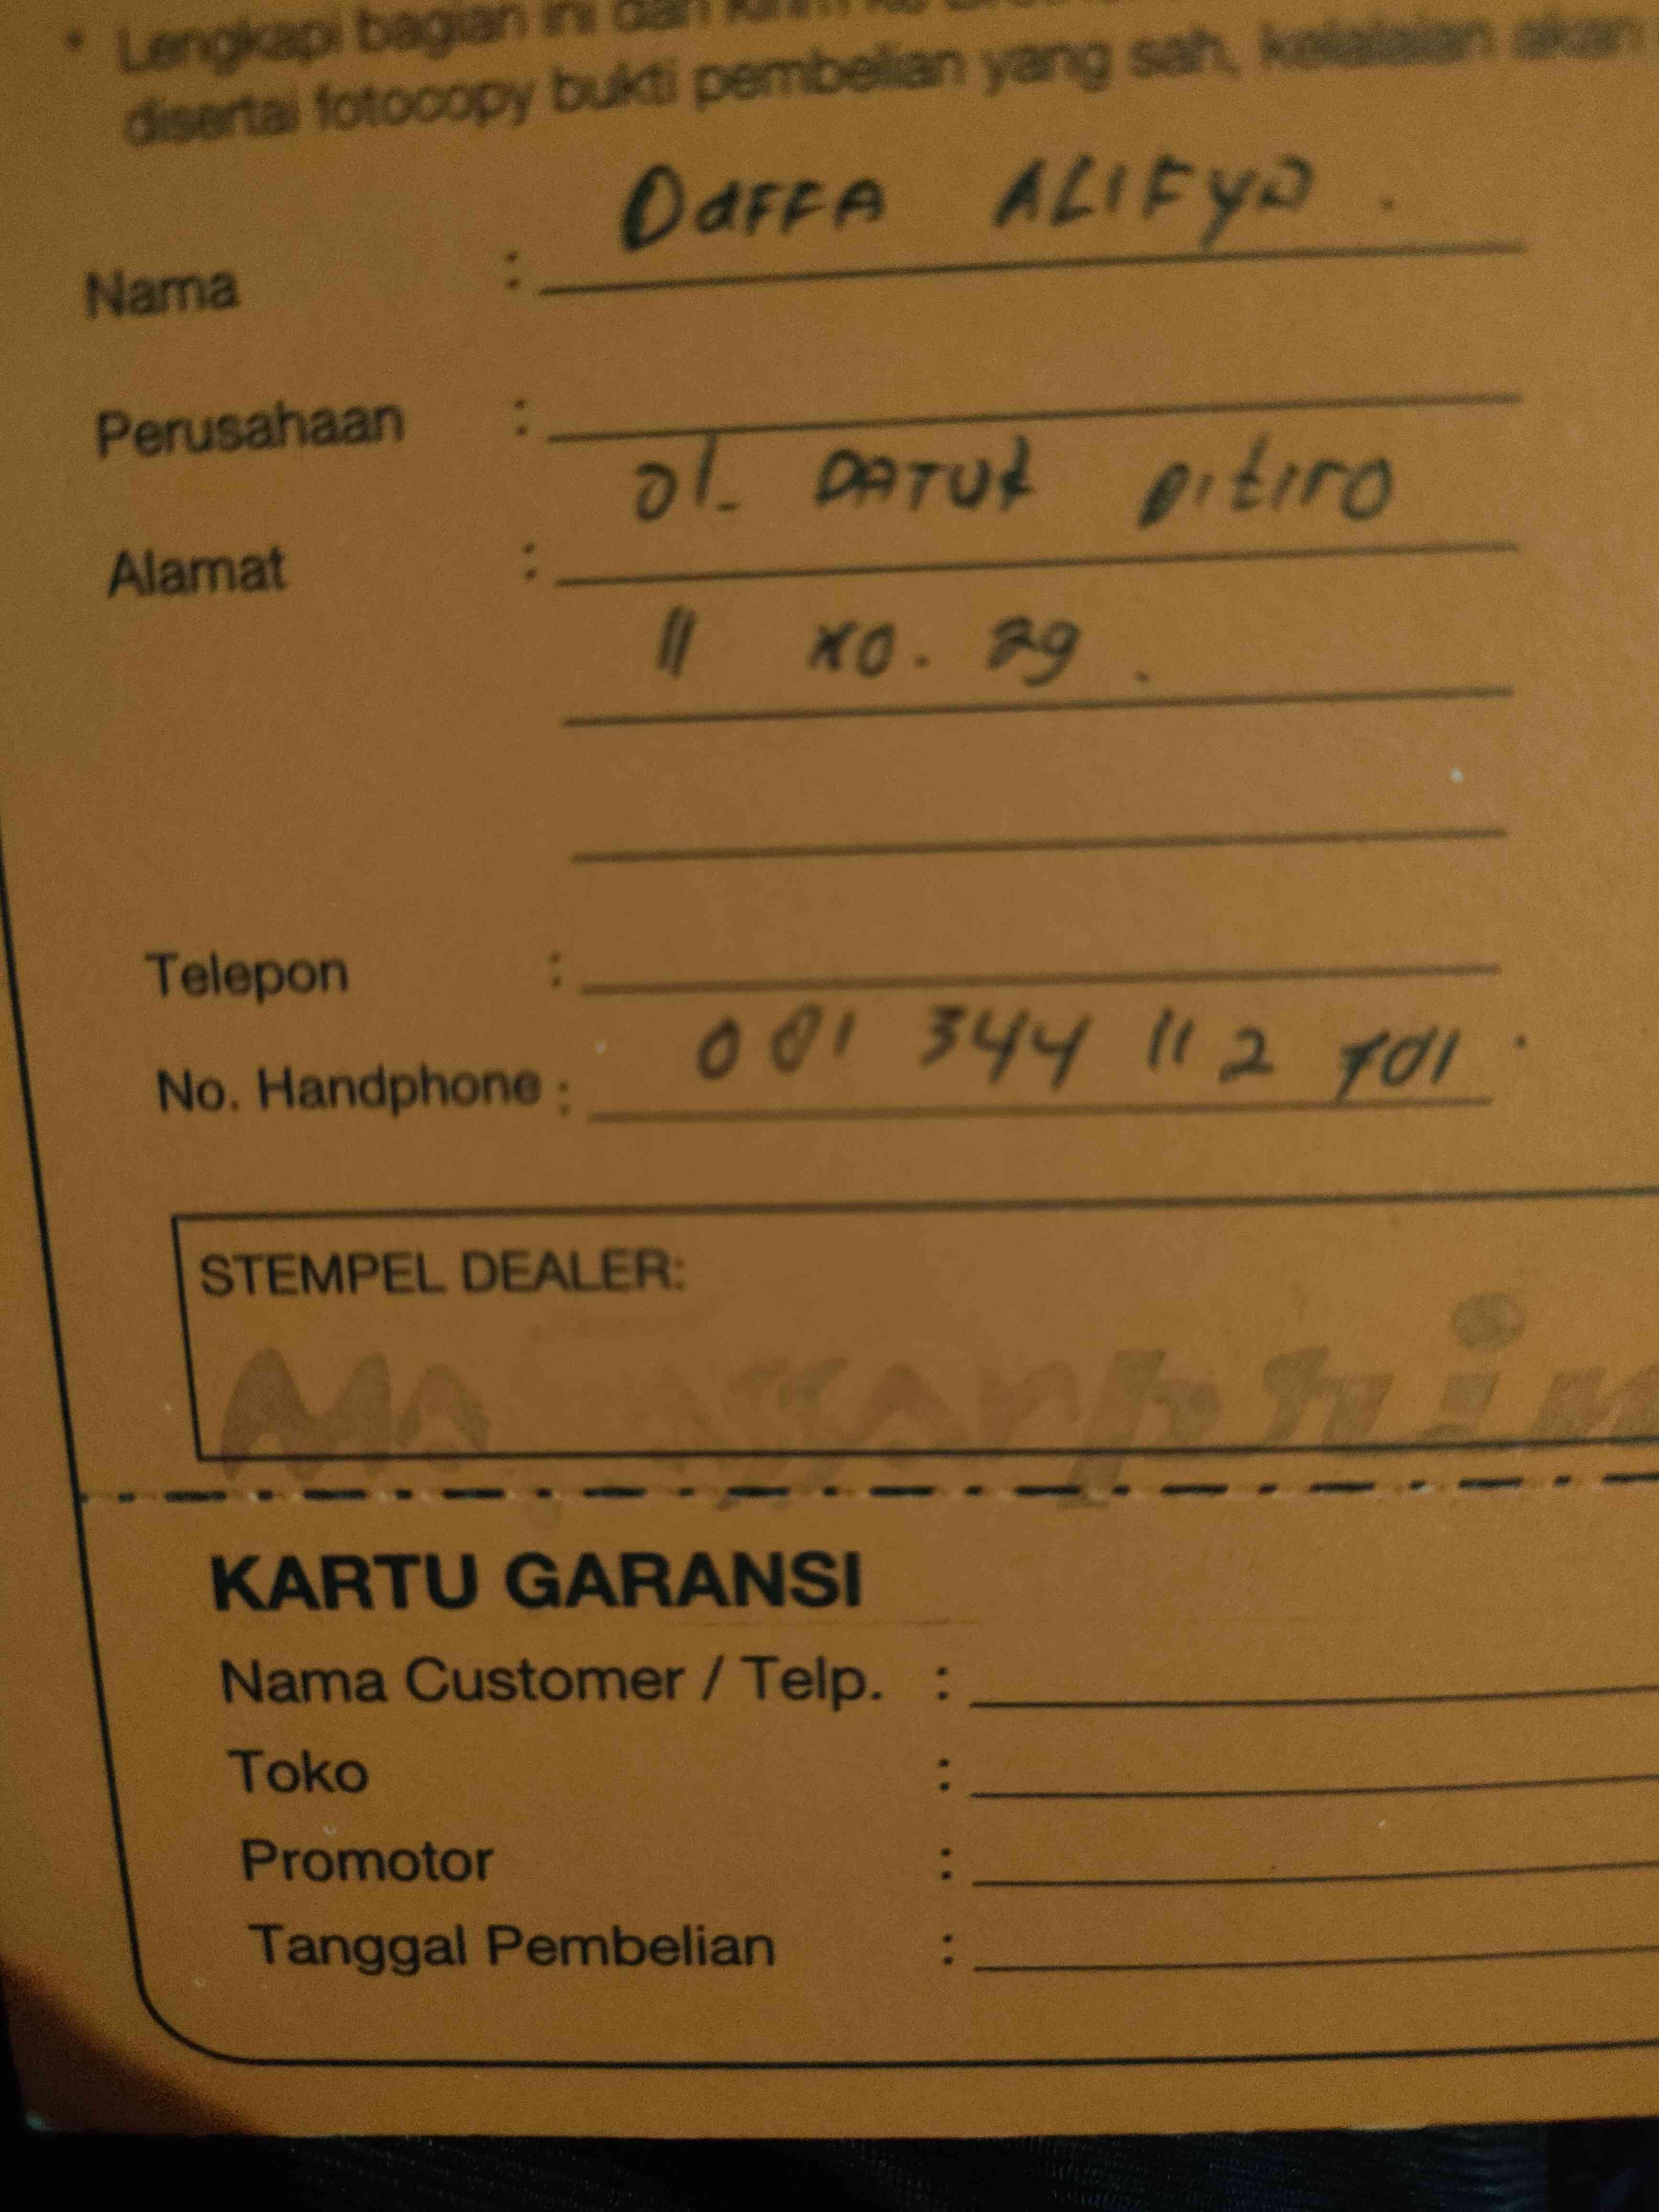 * Lengkapi bagian ini dan kirim ke
disertai fotocopy bukti pembelian yang sah, kelalaian akan
Nama : DAFFA ALIFYA .
Perusahaan :
Alamat : Jl. DATUK DITIRO
11 NO. 29 .
Telepon :
No. Handphone : 081 344 112 701 .
STEMPEL DEALER:
KARTU GARANSI
Nama Customer / Telp. :
Toko :
Promotor :
Tanggal Pembelian :